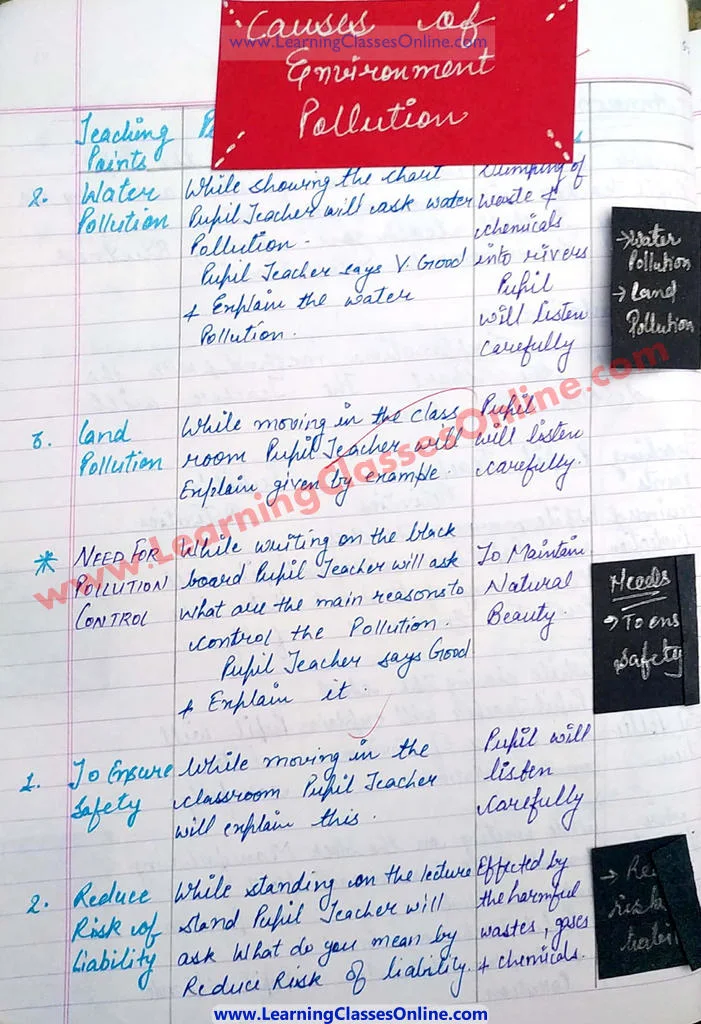 Causes of
www.LearningClassesOnline.com
Environment
Pollution
Teaching
Points
2. Water
Pollution
While showing the chart
Pupil Teacher will ask water
Pollution.
Pupil Teacher says V. Good
& Explain the water
Pollution.
Dumping of
waste &
chemicals
into rivers
Pupil
will listen
carefully
→ Water
Pollution
→ Land
Pollution
3. Land
Pollution
While moving in the class
room Pupil Teacher will
Explain given by example.
Pupil
will listen
carefully.
www.LearningClassesOnline.com
* NEED FOR
POLLUTION
CONTROL
While writing on the black
board Pupil Teacher will ask
What are the main reasons to
control the Pollution.
Pupil Teacher says Good
& Explain it.
To Maintain
Natural
Beauty.
Needs
→ To ens
Safety
1. To Ensure
Safety
While moving in the
classroom Pupil Teacher
will explain this.
Pupil will
listen
carefully
2. Reduce
Risk of
Liability
While standing on the lecture
stand Pupil Teacher will
ask What do you mean by
Reduce Risk of liability.
Effected by
the harmful
wastes, gases
& chemicals.
→ Re
risk
www.LearningClassesOnline.com